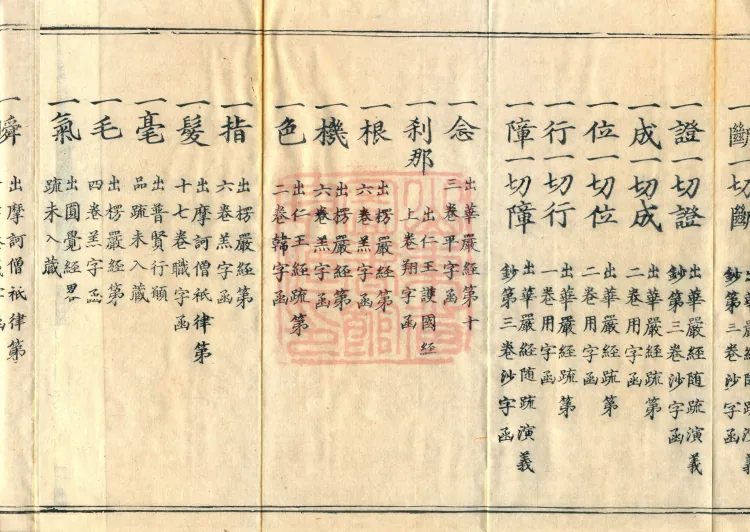 一斷一切斷
鈔第三卷沙字函
一證一切證
出華嚴經随疏演義
鈔第三卷沙字函
一成一切成
出華嚴經疏第
二卷用字函
一位一切位
出華嚴經疏第
二卷用字函
一行一切行
出華嚴經疏第
一卷用字函
一障一切障
出華嚴經随疏演義
鈔第三卷沙字函
一念
出華嚴經第十
三卷平字函
一刹那
出仁王護國經
上卷翔字函
一根
出楞嚴經第
六卷羔字函
一機
出楞嚴經第
六卷羔字函
一色
出仁王經疏第
二卷韓字函
一指
出楞嚴經第
六卷羔字函
一髮
出摩訶僧祇律第
十七卷職字函
一毫
出普賢行願
品疏未入藏
一毛
出楞嚴經第
四卷羔字函
一氣
出圓覺經畧
疏未入藏
一瞬
出摩訶僧祇律第